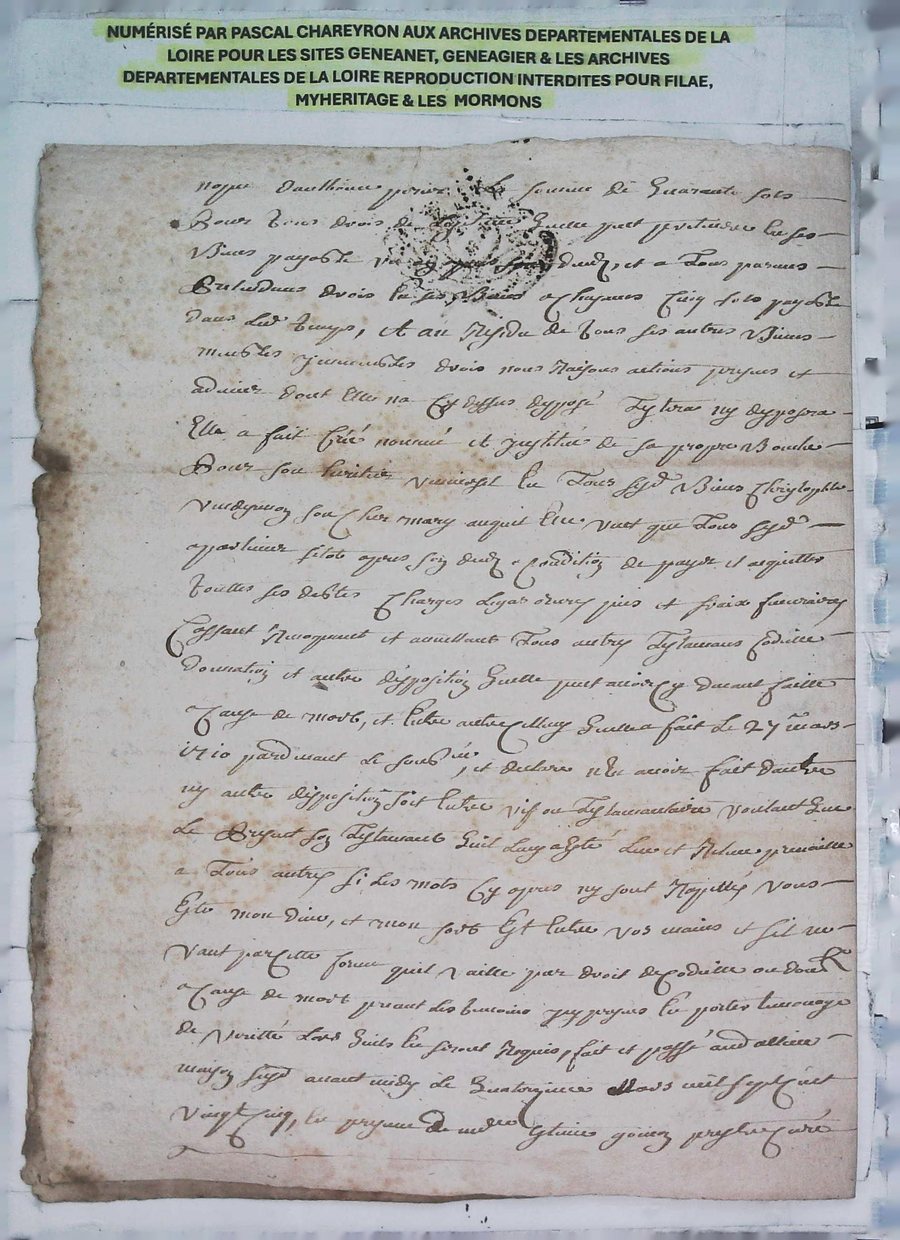 NUMÉRISÉ PAR PASCAL CHAREYRON AUX ARCHIVES DEPARTEMENTALES DE LA
LOIRE POUR LES SITES GENEANET, GENEAGIER & LES ARCHIVES
DEPARTEMENTALES DE LA LOIRE REPRODUCTION INTERDITES POUR FILAE,
MYHERITAGE & LES MORMONS
la somme de Quarante sols
Pour tous drois de quelle peut pretendre en ses
Biens payable et a tous
Pretendans drois en ses Biens a chascuns Cinq sols payable
dans led temps, Et au Residu de tous ses autres Biens
meubles immeubles drois noms Raisons actions presens et
advenir dont Elle na Cy dessus dispposé Testera ny dispposera
Elle a fait Créé nommé et institué de sa propre Bouche
Pour son heritier universel En Tous sesd Biens Christophle
son Cher mary auquel Elle veut que Tous sesd
apartienne sitot apres son a Condition de payer et aquitter
touttes ses debtes Charges legas pies et fraix funeraires
Cassant Revoquant et annullant Tous autres Testamans Codicille
Donnation et autre disposition Quelle peut avoir Cy devant faitte
a Cause de mort, et Entre autre Celluy Quelle a fait le 27 mars
1710 pardevant le et declare nEn avoir fait dautre
ny autre disposition soit Entre vif ou Testamantaire voullant que
Le Present son Testamant Quil luy a Esté Leu et Releu prevaille
a Tous autres si les mots Cy apres ny sont Rapellés vous
Este mon dieu, et mon sort Est Entre vos mains et sil ne
vaut par Cette forme quil vaille par droit de Codicille ou don
a Cause de mort priant les temoins icy presens En porter temoignage
de veritté Lors Quils En seront Requis, fait et passé aud
maison susd avant midy le Quatorzieme Mars mil sept Cent
vingt Cinq, En presence de Estiene prestre Curé